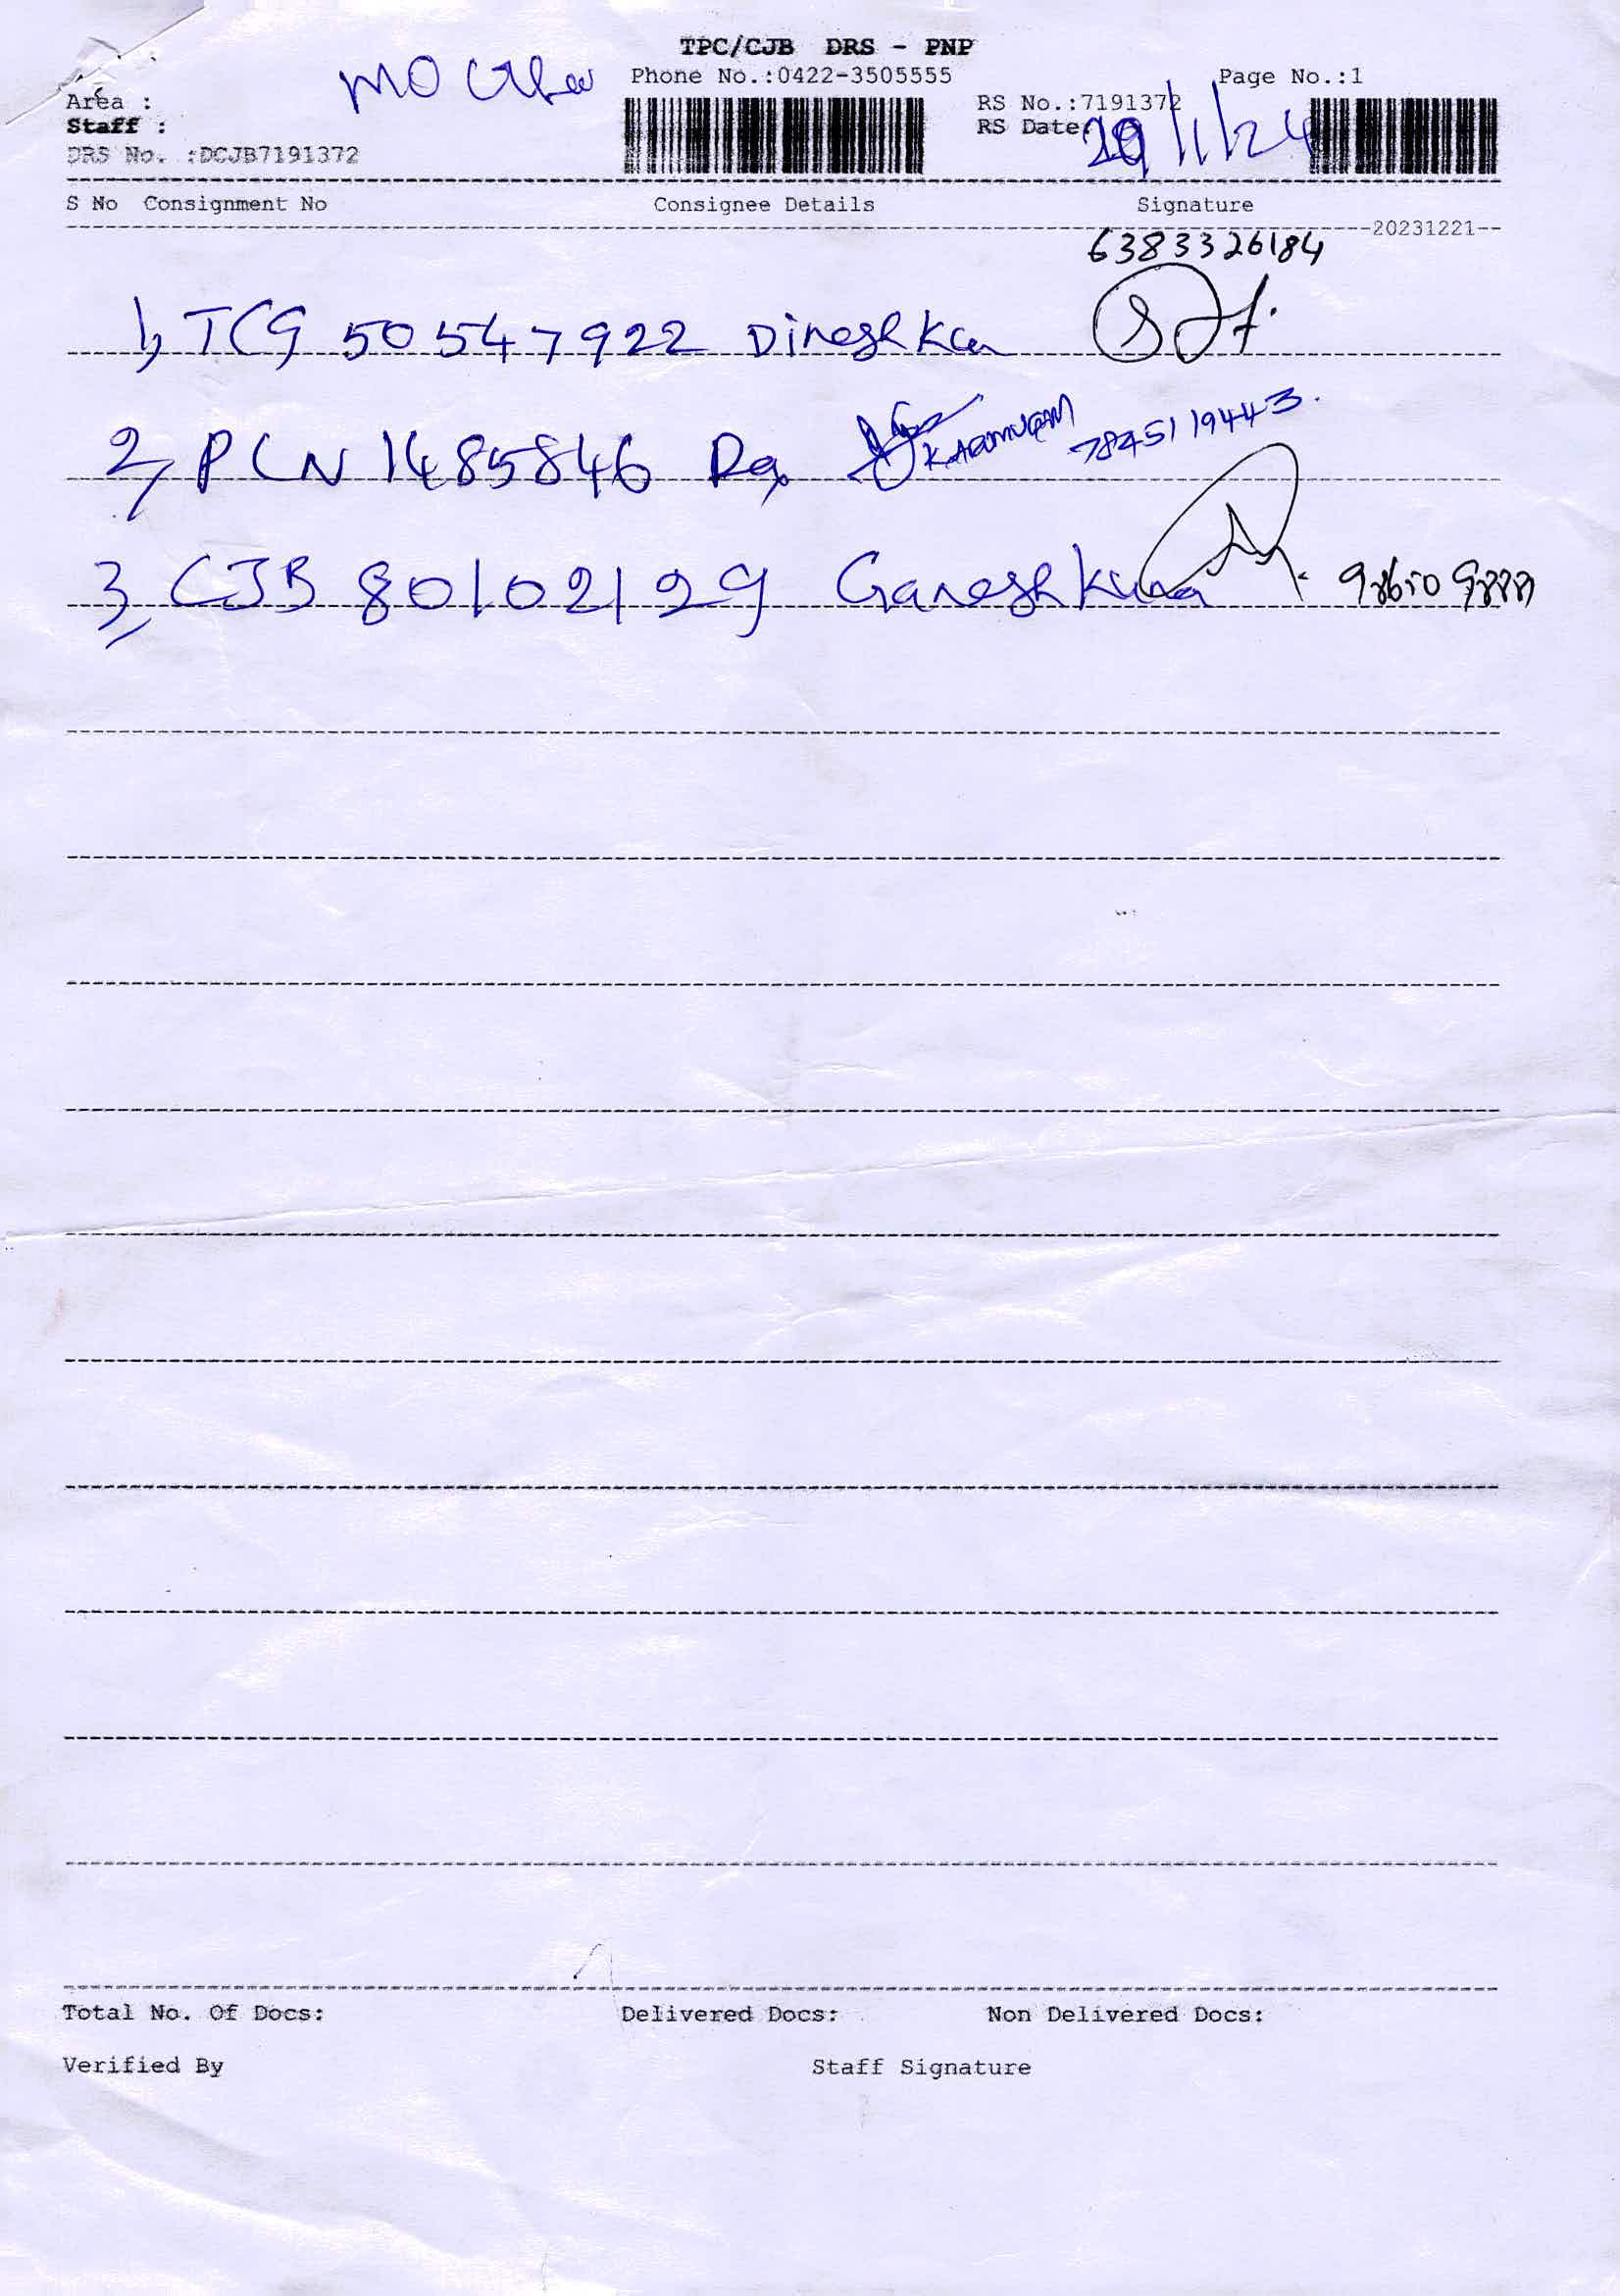 TPC/CJB DRS - PNP
Phone No.:0422-3505555
Page No.:1
Area :
MO
RS No.:7191372
Staff :
RS Date: /1/24
DRS No. :DCJB7191372
S No Consignment No Consignee Details Signature
20231221
6383326184
1, TCG 50547922 Dinesh
2, PLN 1485846 7845119443.
3, CJB 80102129 Ganesh
Total No. Of Docs: Delivered Docs: Non Delivered Docs:
Verified By Staff Signature